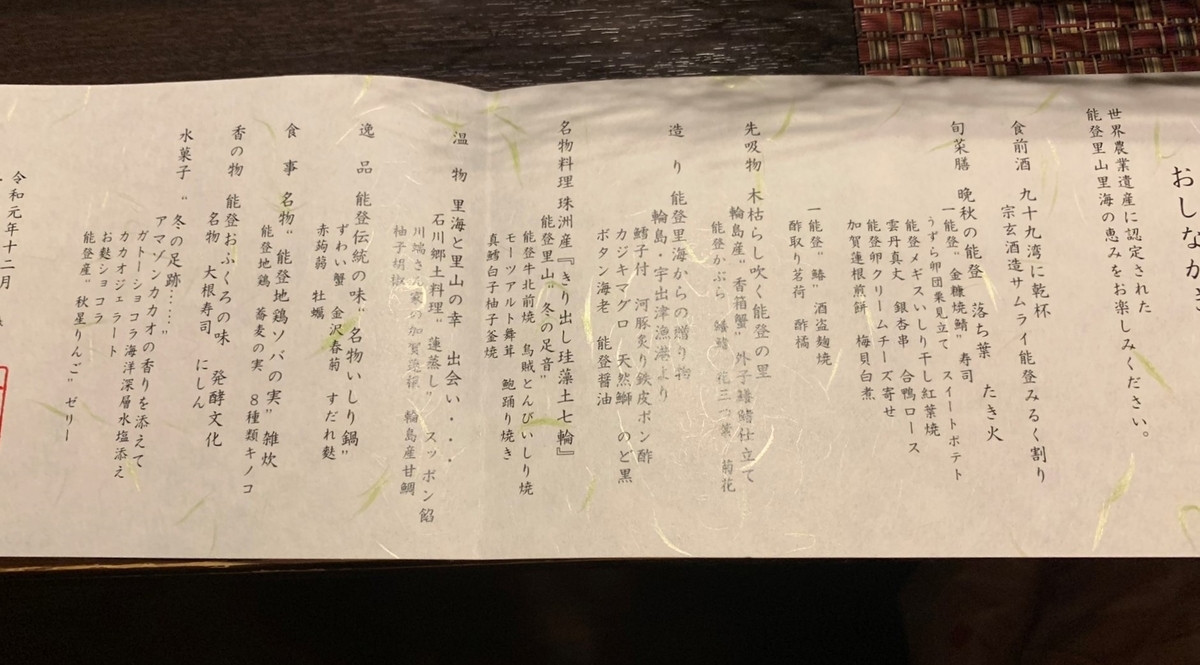 おしなが
世界農業遺産に認定された
能登里山里海の恵みをお楽しみください。
食前酒 九十九湾に乾杯
宗玄酒造サムライ能登みるく割り
旬菜膳 晩秋の能登 落ち葉 たき火
一能登〝金糠焼鯖〟寿司 スイートポテト
うずら卵団栗見立て
能登メギスいしり干し紅葉焼
雲丹真丈 銀杏串 合鴨ロース
能登卵クリームチーズ寄せ
加賀蓮根煎餅 梅貝白煮
一能登〝鰆〟酒盗麹焼
酢取り茗荷 酢橘
先吸物 木枯らし吹く能登の里
輪島産〝香箱蟹〟外子鱶鰭仕立て
能登かぶら 鱶鰭 花三つ葉 菊花
造り 能登里海からの贈り物
輪島・宇出津漁港より
鱈子付 河豚炙り鉄皮ポン酢
カジキマグロ 天然鰤 のど黒
ボタン海老 能登醤油
名物料理 珠洲産『きり出し珪藻土七輪』
能登里山〝冬の足音〟
能登牛北前焼 烏賊とんびいしり焼
モーツアルト舞茸 鮑踊り焼き
真鱈白子柚子釜焼
温物 里海と里山の幸 出会い・・・
石川郷土料理〝蓮蒸し〟スッポン餡
川端さん家の加賀蓮根 輪島産甘鯛
柚子胡椒
逸品 能登伝統の味〝名物いしり鍋〟
ずわい蟹 金沢春菊 すだれ麩
赤蒟蒻 牡蠣
食事 名物〝能登地鶏ソバの実〟雑炊
能登地鶏 蕎麦の実 8種類キノコ
香の物 能登おふくろの味 発酵文化
名物 大根寿司 にしん
水菓子 〝冬の足跡……〟
アマゾンカカオの香りを添えて
ガトーショコラ海洋深層水塩添え
カカオジェラート
お麩ショコラ
能登産〝秋星りんご〟ゼリー
令和元年十二月